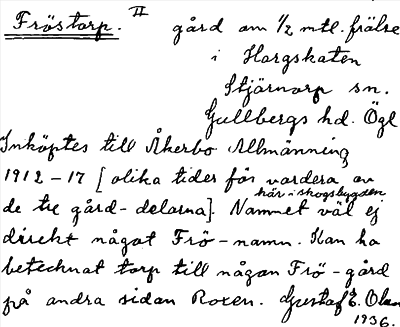 Fröstorp. II gård om 1/2 mtl. frälse
i Horgskaten
Stjärnorp sn.
Gullbergs hd. Ögl
Inköptes till Åkerbo Allmänning
1912-17 [olika tider för vardera av
här i skogsbygden
de tre gård-delarna]. Namnet väl ej
direkt något Frö-namn. Kan ha
betecknat torp till någon Frö-gård
på andra sidan Roxen. Gustaf E. Olsson
1936.